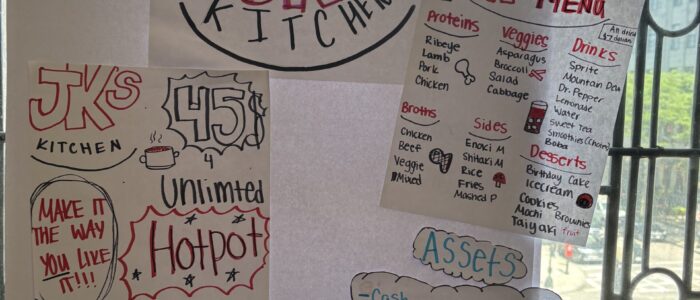 KITCHEN
MENU
An drink
$7 dollars
Proteins
Ribeye
Lamb
Pork
Chicken
Veggies
Asparagus
Broccoli
Salad
Cabbage
Drinks
Sprite
Mountain Dew
Dr. Pepper
Lemonade
Water
Sweet Tea
Smoothies
Boba
Broths
Chicken
Beef
Veggie
Mixed
Sides
Enoki M
Shitaki M
Rice
Fries
Mashed P
Desserts
Birthday Cake
Icecream
Cookies
Mochi Brownies
Taiyaki fruit
JKs
KITCHEN
45$
4
Unlimted
Hotpot
MAKE IT
THE WAY
YOU LIKE
IT!!!
Assets
-Cash